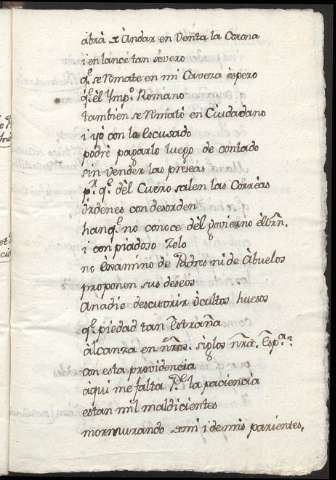 abrà de Andar en Venta la Corona
i en lance tan sebero
q̃. se Remate en mi Cavera espero
q̃. el Ymp.º Romano
tambien se Rematò en Ciudadano
i yo con lo escusado
podrè pagarlo luego de contado
sin vender las preseas
p.ª q̃. del Cuero salen las Correas
òrdenes con desorden
han q̃. no conoce del govierno el
i con piadoso zelo
no examino de Padres ni de Abuelos
proponen sus deseos
Anadie descubrir ocultos huesos
q̃. piedad tan estraña
alcanza en ñros. siglos nrã. Esp.ª
con esta providencia
aqui me falta la paciencia
estan mil maldicientes
mormurando de mi i de mis parientes,